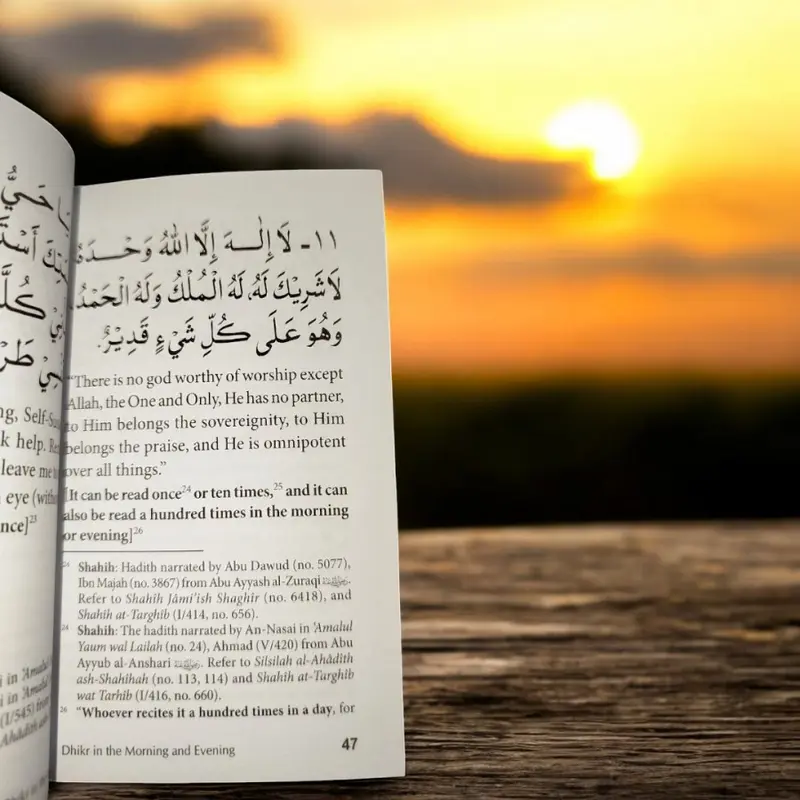 ١١- لَا إِلٰـــهَ إِلَّا اللهُ وَحْـــدَهُ
لَا شَرِيْكَ لَهُ، لَهُ الْمُلْكُ وَلَهُ الْحَمْدُ
وَهُوَ عَلَى كُلِّ شَيْءٍ قَدِيْرٌ.
“There is no god worthy of worship except
Allah, the One and Only, He has no partner,
to Him belongs the sovereignity, to Him
belongs the praise, and He is omnipotent
over all things.”
[It can be read once²⁴ or ten times,²⁵ and it can
also be read a hundred times in the morning
or evening]²⁶
Shahih: Hadith narrated by Abu Dawud (no. 5077),
Ibn Majah (no. 3867) from Abu Ayyash al-Zuraqi
Refer to Shahih Jâmi’ish Shaghîr (no. 6418), and
Shahih at-Targhib (I/414, no. 656).
²⁴ Shahih: The hadith narrated by An-Nasai in ’Amalul
Yaum wal Lailah (no. 24), Ahmad (V/420) from Abu
Ayyub al-Anshari. Refer to Silsilah al-Ahâdith
ash-Shahihah (no. 113, 114) and Shahih at-Targhib
wat Tarhib (I/416, no. 660).
²⁶ “Whoever recites it a hundred times in a day, for
Dhikr in the Morning and Evening 47